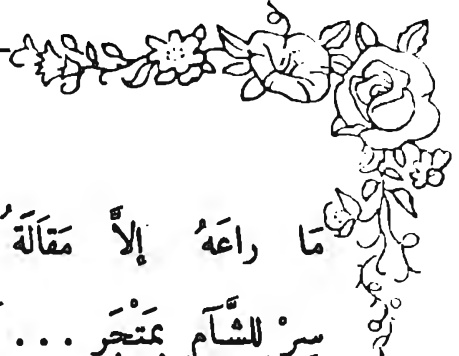 مَا رَاعَهُ إِلاَّ مَقَالَةُ
سِرْ لِلشَّآمِ بِمَتْجَرٍ ...